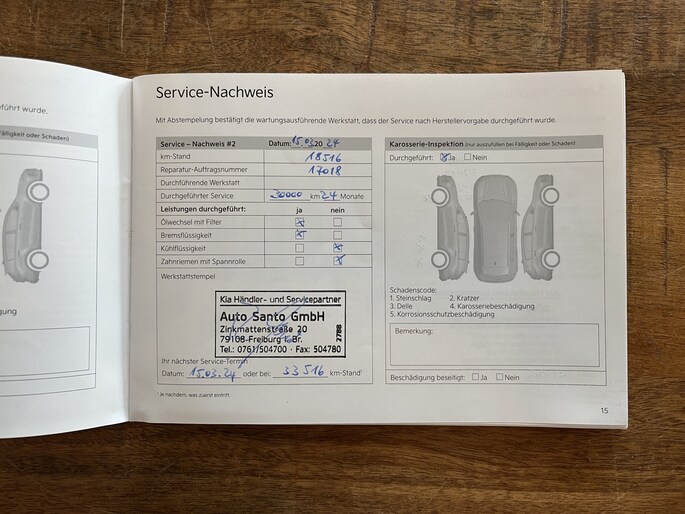 führt wurde.
Fälligkeit oder Schaden)
gung
Service-Nachweis
Mit Abstempelung bestätigt die wartungsausführende Werkstatt, dass der Service nach Herstellervorgabe durchgeführt wurde.
Service – Nachweis #2 Datum: 15.03.2024
km-Stand 18516
Reparatur-Auftragsnummer 17018
Durchführende Werkstatt
Durchgeführter Service 30000 km 24 Monate
Leistungen durchgeführt: ja nein
Ölwechsel mit Filter
Bremsflüssigkeit
Kühlflüssigkeit
Zahnriemen mit Spannrolle
Werkstattstempel
Kia Händler- und Servicepartner
Auto Santo GmbH
Zinkmattenstraße 20
79108-Freiburg i. Br.
Tel.: 0761/504700 · Fax: 504780
2788
Ihr nächster Service-Termin
Datum: 15.03.24 oder bei: 33516 km-Stand¹
¹ Je nachdem, was zuerst eintrifft.
Karosserie-Inspektion (nur auszufüllen bei Fälligkeit oder Schaden)
Durchgeführt: Ja Nein
Schadenscode:
1. Steinschlag 2. Kratzer
3. Delle 4. Karosseriebeschädigung
5. Korrosionsschutzbeschädigung
Bemerkung:
Beschädigung beseitigt: Ja Nein
15